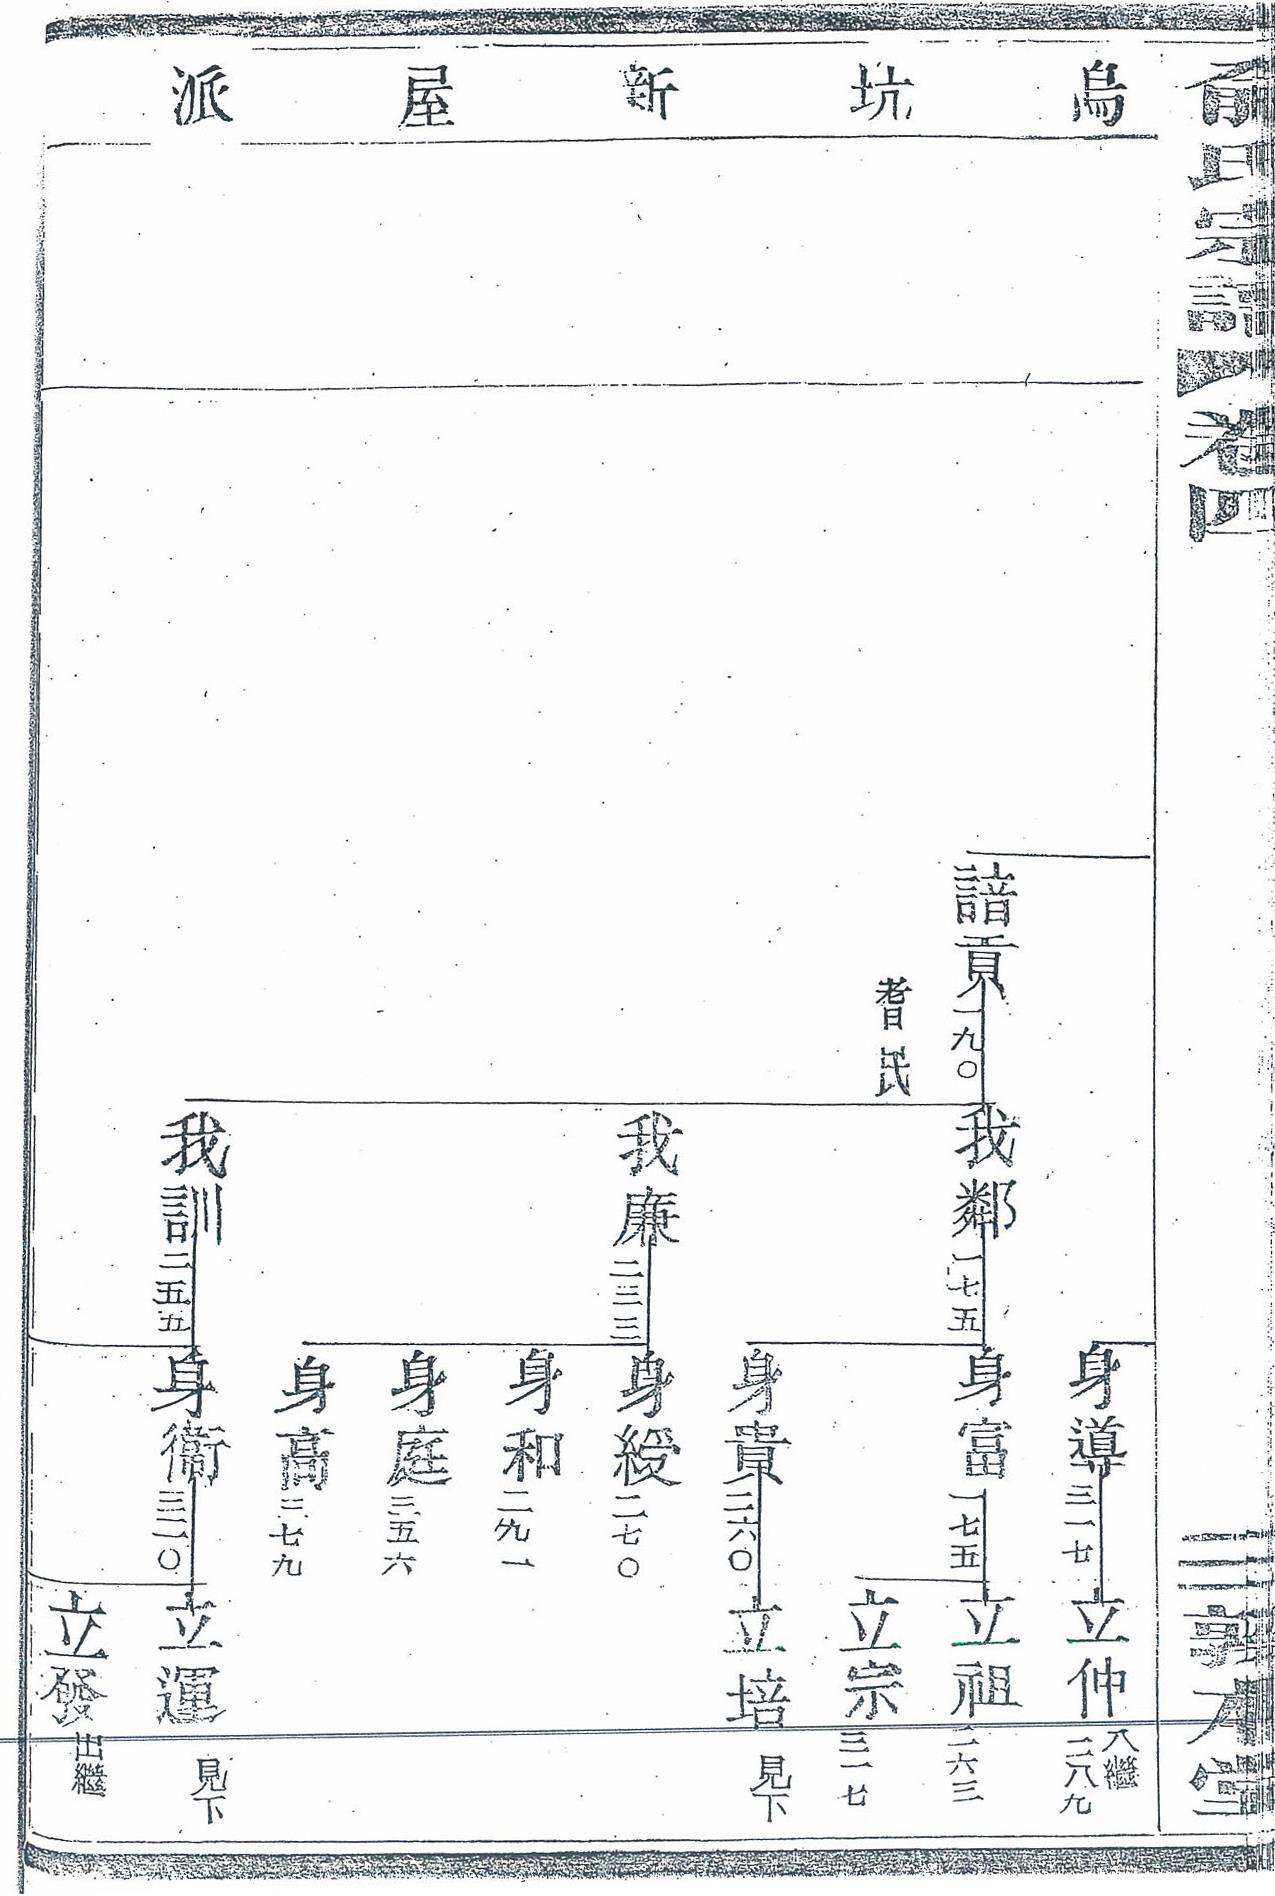 氏宗譜 卷四
三 敦本堂
烏坑新屋派
諳貢 一九〇
耆民
我鄰 一七五
我廉 二三三
我訓 二五五
身導 三一七
身富 一七五
身貴 二六〇
身綬 二七〇
身和 二九一
身庭 三五六
身高 三七九
身衞 三二〇
立仲 入繼 二八九
立祖 二六三
立宗 三一七
立培 見下
立運 見下
立發 出繼